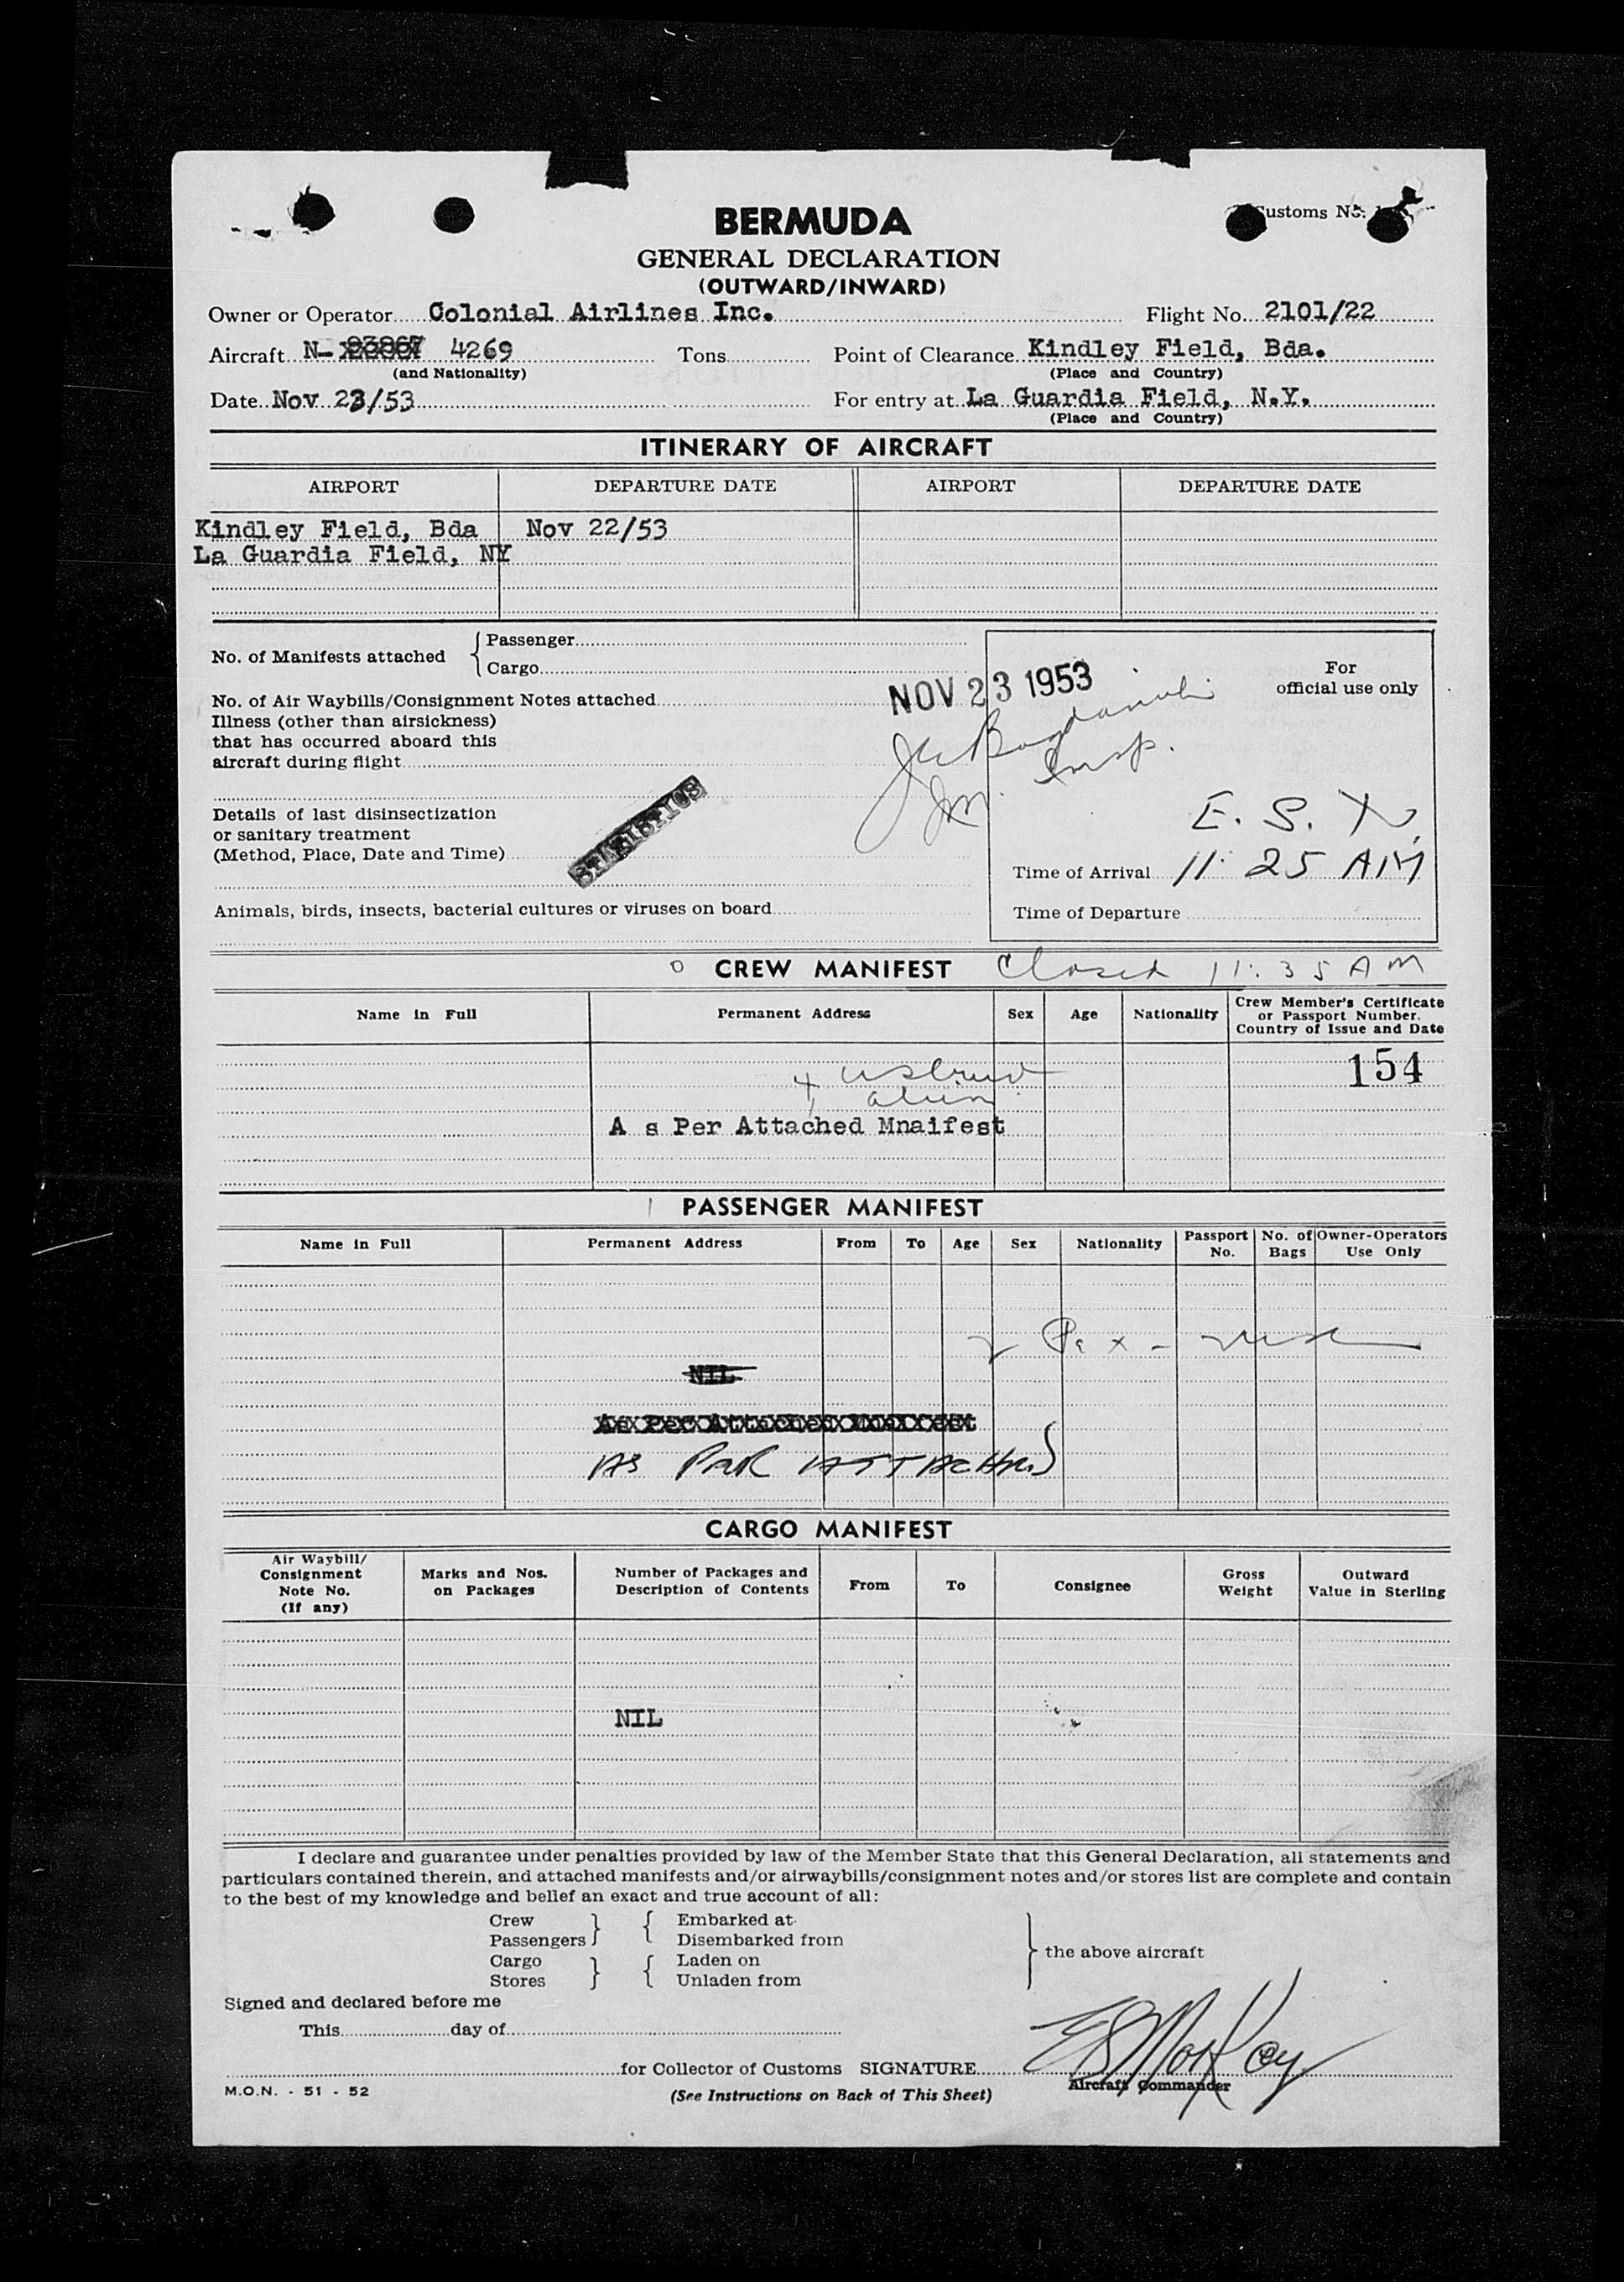 Customs No.
BERMUDA
GENERAL DECLARATION
(OUTWARD/INWARD)
Owner or Operator Colonial Airlines Inc. Flight No. 2101/22
Aircraft N- 4269 Tons Point of Clearance Kindley Field, Bda.
(and Nationality) (Place and Country)
Date Nov 23/53 For entry at La Guardia Field, N.Y.
(Place and Country)
ITINERARY OF AIRCRAFT
AIRPORT DEPARTURE DATE AIRPORT DEPARTURE DATE
Kindley Field, Bda Nov 22/53
La Guardia Field, NY
No. of Manifests attached { Passenger
Cargo
For
official use only
NOV 23 1953
No. of Air Waybills/Consignment Notes attached
Illness (other than airsickness)
that has occurred aboard this
aircraft during flight
Insp.
Details of last disinsectization
or sanitary treatment
(Method, Place, Date and Time)
STATISTICS
E. S. T.
Time of Arrival 11:25 AM
Animals, birds, insects, bacterial cultures or viruses on board
Time of Departure
CREW MANIFEST Closed 11:35 AM
Name in Full Permanent Address Sex Age Nationality Crew Member's Certificate
or Passport Number.
Country of Issue and Date
154
A s Per Attached Mnaifest
PASSENGER MANIFEST
Name in Full Permanent Address From To Age Sex Nationality Passport No. No. of Bags Owner-Operators Use Only
Pax -
NIL
As Per Attached
AS PER ATTACHED
CARGO MANIFEST
Air Waybill/
Consignment
Note No.
(If any)
Marks and Nos.
on Packages
Number of Packages and
Description of Contents
From To Consignee
Gross
Weight
Outward
Value in Sterling
NIL
I declare and guarantee under penalties provided by law of the Member State that this General Declaration, all statements and
particulars contained therein, and attached manifests and/or airwaybills/consignment notes and/or stores list are complete and contain
to the best of my knowledge and belief an exact and true account of all:
Crew } { Embarked at
Passengers Disembarked from
Cargo } { Laden on
Stores Unladen from
} the above aircraft
Signed and declared before me
This day of
for Collector of Customs SIGNATURE
Aircraft Commander
M.O.N. - 51 - 52
(See Instructions on Back of This Sheet)